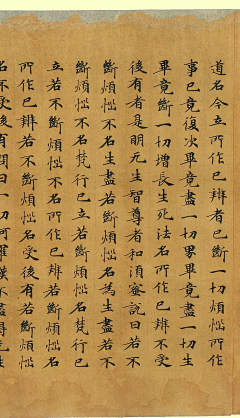 道名今立所作已辨者已斷一切煩惱所作
事已竟復次畢竟盡一切界畢竟盡一切生
畢竟斷一切增長生死法名所作已辨不受
後有者是明无生智尊者和須蜜說曰若不
斷煩惱不名生盡若斷煩惱名為生盡若不
斷煩惱不名梵行已立若斷煩惱名梵行已
立若不斷煩惱不名所作已辨若斷煩惱名
所作已辨若不斷煩惱名受後有若斷煩惱
名不受後有問曰一切阿羅漢不盡得无生